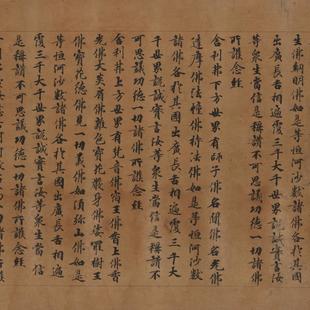 生佛網明佛如是等恒河沙數諸佛各於其國
出廣長舌相遍覆三千大千世界說誠實言汝
等衆生當信是稱讚不可思議功德一切諸佛
所護念經
舍利弗下方世界有師子佛名聞佛名光佛
達摩佛法幢佛持法佛如是等恒河沙數
諸佛各於其國出廣長舌相遍覆三千大
千世界說誠實言汝等衆生當信是稱讚不
可思議功德一切諸佛所護念經
舍利弗上方世界有梵音佛宿王佛香上佛香
光佛大炎肩佛雜色寶花嚴身佛娑羅樹王
佛寶花德佛見一切義佛如須弥山佛如是
等恒河沙數諸佛各於其國出廣長舌相遍
覆三千大千世界說誠實言汝等衆生當信
是稱讚不可思議功德一切諸佛所護念經